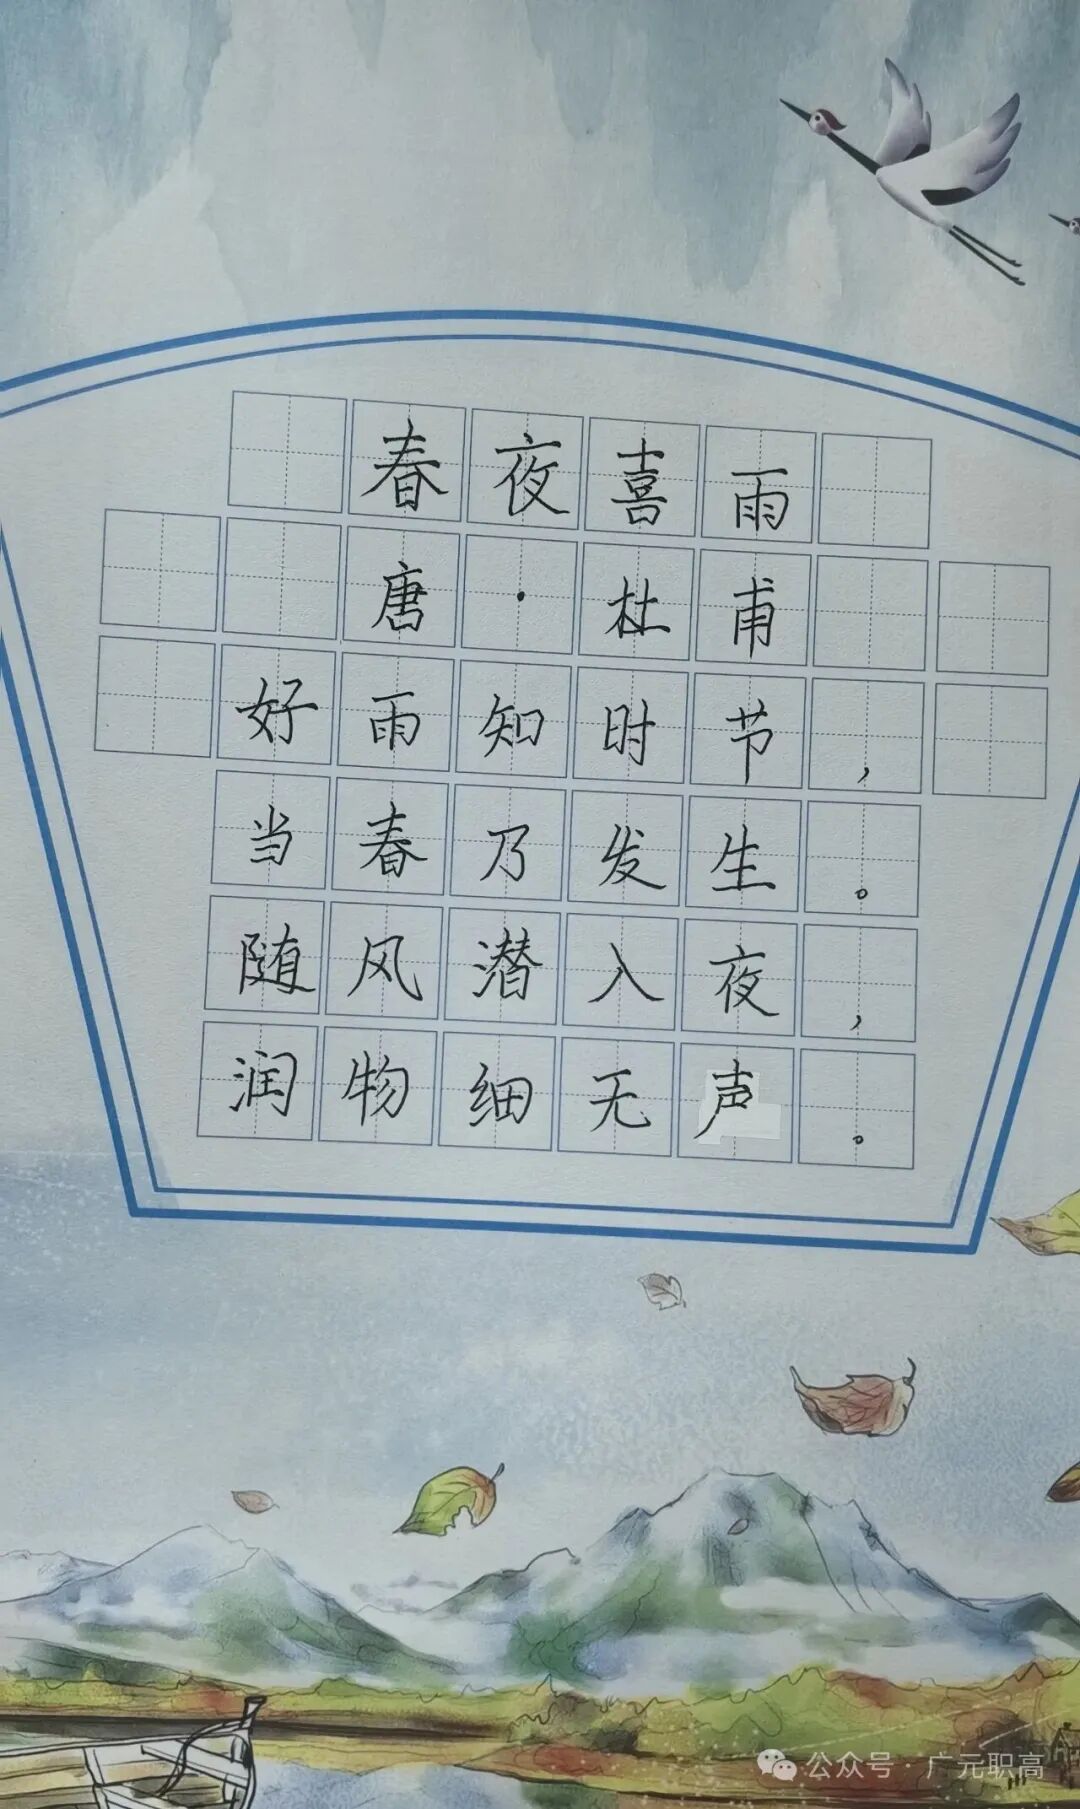 春夜喜雨
唐·杜甫
好雨知时节，
当春乃发生。
随风潜入夜，
润物细无声。
公众号·广元职高